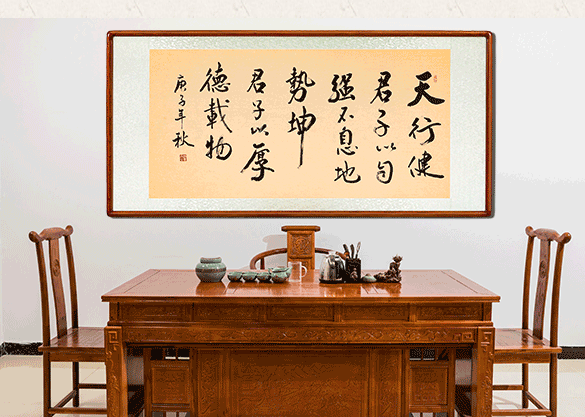 天行健
君子以自
强不息地
勢坤
君子以厚
德載物
庚子年秋